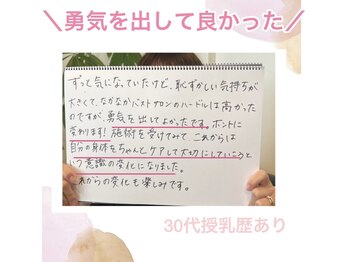 ＼勇気を出して良かった／
ずっと気になっていたけど、恥ずかしい気持ちが
大きくて、なかなかバストサロンのハードルは高かった
のですが、勇気を出してよかったです。ホントに
変わります！施術を受けてみて、これからは
自分の身体をちゃんとケアして大切にしていこうと
いう意識の変化になりました。
これからの変化も楽しみです。
30代授乳歴あり